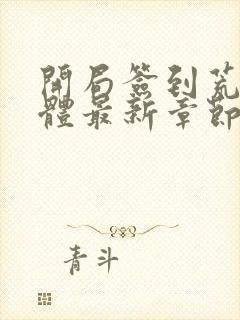 開局簽到荒
體最新章節
青斗